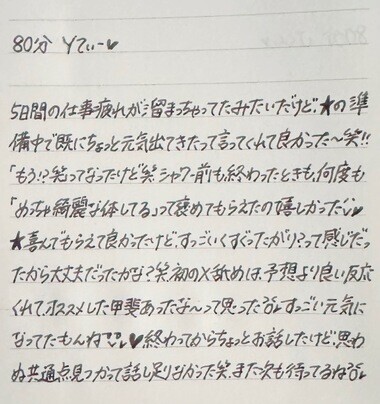 80分 Yてぃー♥
5日間の仕事疲れが溜まっちゃってたみたいだけど、★の準
備中で既にちょっと元気出てきたって言ってくれて良かった〜笑!!
「もう!?笑ってなったけど笑 シャワー前も終わったときも、何度も
「めちゃ綺麗な体してる」って褒めてもらえたの嬉しかった♥
★喜んでもらえて良かったけど、すっごいくすぐったがり?って感じだっ
たから大丈夫だったかな?笑 初の×舐めは、予想より良い反応
くれて、オススメした甲斐あったな〜って思った すっごい元気に
なってたもんね♥終わってからちょっとお話したけど、思わ
ぬ共通点見つかって話し足りなかった笑、また次も待ってるね